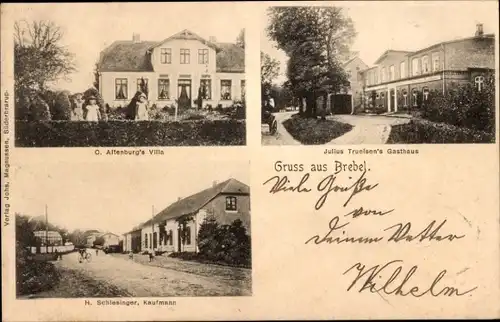 C. Altenburg's Villa
Julius Truelsen's Gasthaus
Gruss aus Brebel.
Viele Grüße
von
Deinem Vetter
Wilhelm.
H. Schlesinger, Kaufmann
Verlag Johs. Magnussen, Süderbrarup.